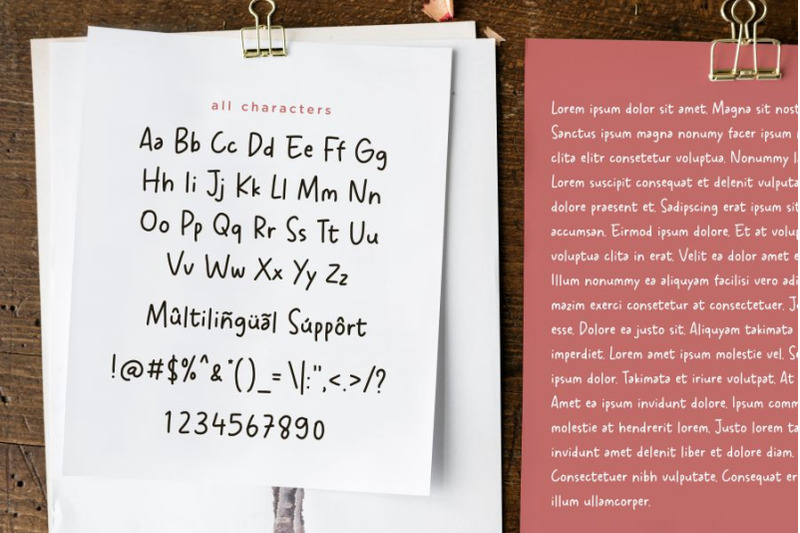 all characters
Aa Bb Cc Dd Ee Ff Gg
Hh Ii Jj Kk Ll Mm Nn
Oo Pp Qq Rr Ss Tt Uu
Vv Ww Xx Yy Zz
Mûltiliñgüãl Súppôrt
!@#$%^&*()_=\|:",<.>/?
1234567890
Lorem ipsum dolor sit amet. Magna sit
Sanctus ipsum magna nonumy facer ipsum
clita elitr consetetur voluptua. Nonummy
Lorem suscipit consequat et delenit
dolore praesent et. Sadipscing erat ipsum
accumsan. Eirmod ipsum dolore. Et at
voluptua clita in erat. Velit ea dolor amet
Illum nonummy ea aliquyam facilisi vero
mazim exerci consetetur at consectetuer.
esse. Dolore ea justo sit. Aliquyam takimata
imperdiet. Lorem amet ipsum molestie vel.
ipsum dolor. Takimata et iriure volutpat. At
Amet ea ipsum invidunt dolore. Ipsum
molestie at hendrerit lorem. Justo lorem
invidunt amet delenit liber et dolore diam.
Consectetuer nibh vulputate. Consequat
illum ullamcorper.